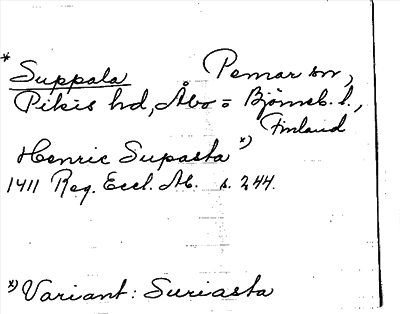 * Suppala Pemar sn,
Pikis hd, Åbo = Björneb. l.,
Finland
Henric Supasta *)
1411 Reg. Eccl. Ab. s. 244.
*) Variant: Suriasta